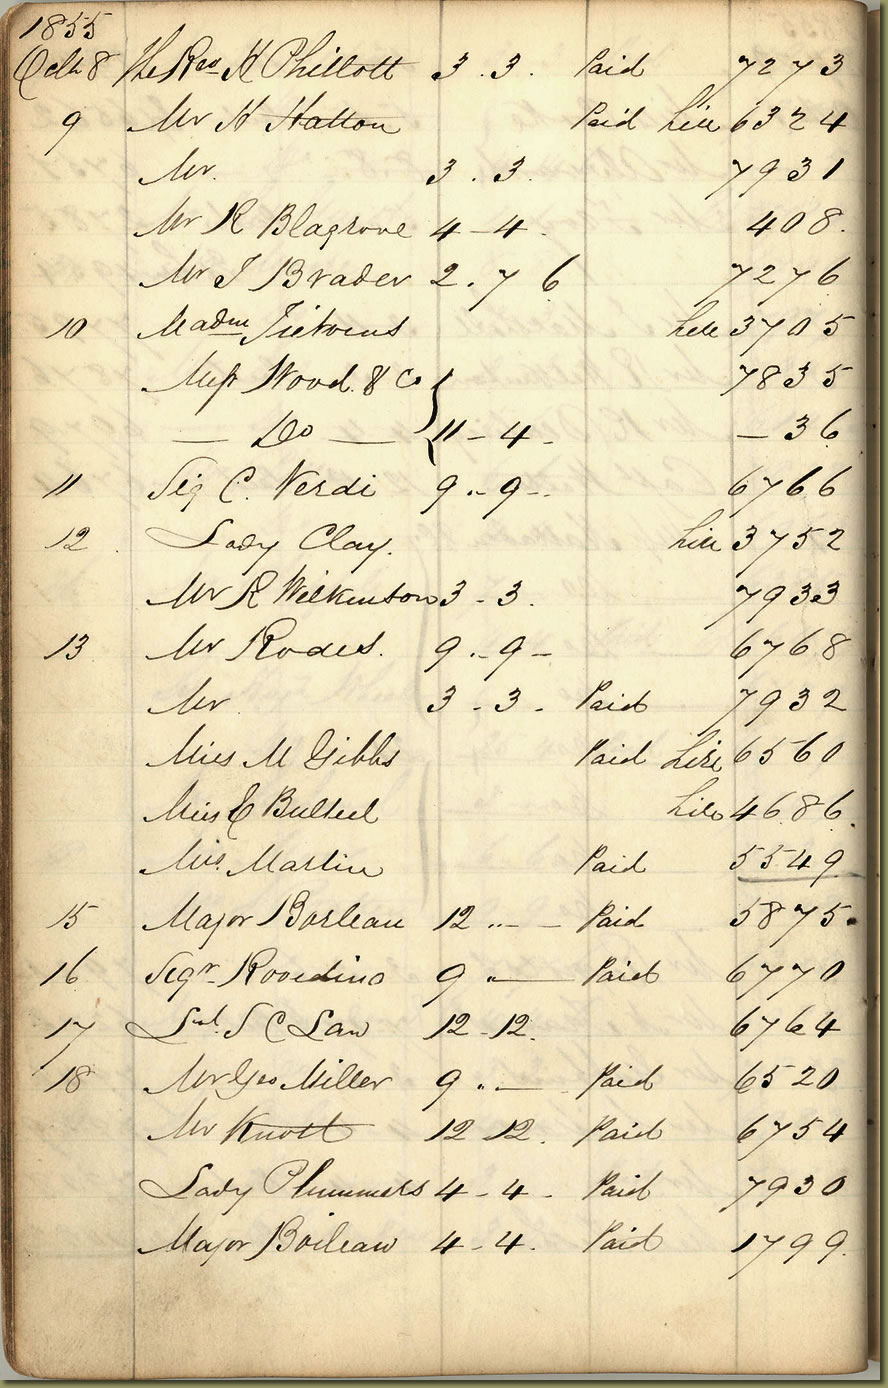 1855
Octr 8 The Rev H Phillott 3 . 3 . Paid 7273
9 Mr H Hatton Paid hire 6324
Mr. 3 . 3 . 7931
Mr R Blagrove 4 - 4 . 408.
Mr J Brader 2 . 7 6 7276
10 Madm hire 3705
Messrs Wood & Co 7835
— Do — 11 - 4 - — 36
11 Sig C. Verdi 9 .. 9 - . 6766
12 . Lady Clay. hire 3752
Mr R Wilkinson 3 - 3 . 7933
13 Mr Rodes. 9 .. 9 - 6768
Mr 3 - 3 - Paid 7932
Miss M Gibbs Paid hire 6560
Miss E Bulteel hire 4686.
Mis. Martin Paid 5549
15 Major Boileau 12 .. - - Paid 5875.
16 Sigr 9 .. — Paid 6770
17 S C Law 12 - 12. 6764
18 Mr Geo Miller 9 .. — Paid 6520
Mr Knott 12 - 12 . Paid 6754
Lady Plummers 4 - 4 - Paid 7930
Major Boileau 4 - 4 . Paid 1799.